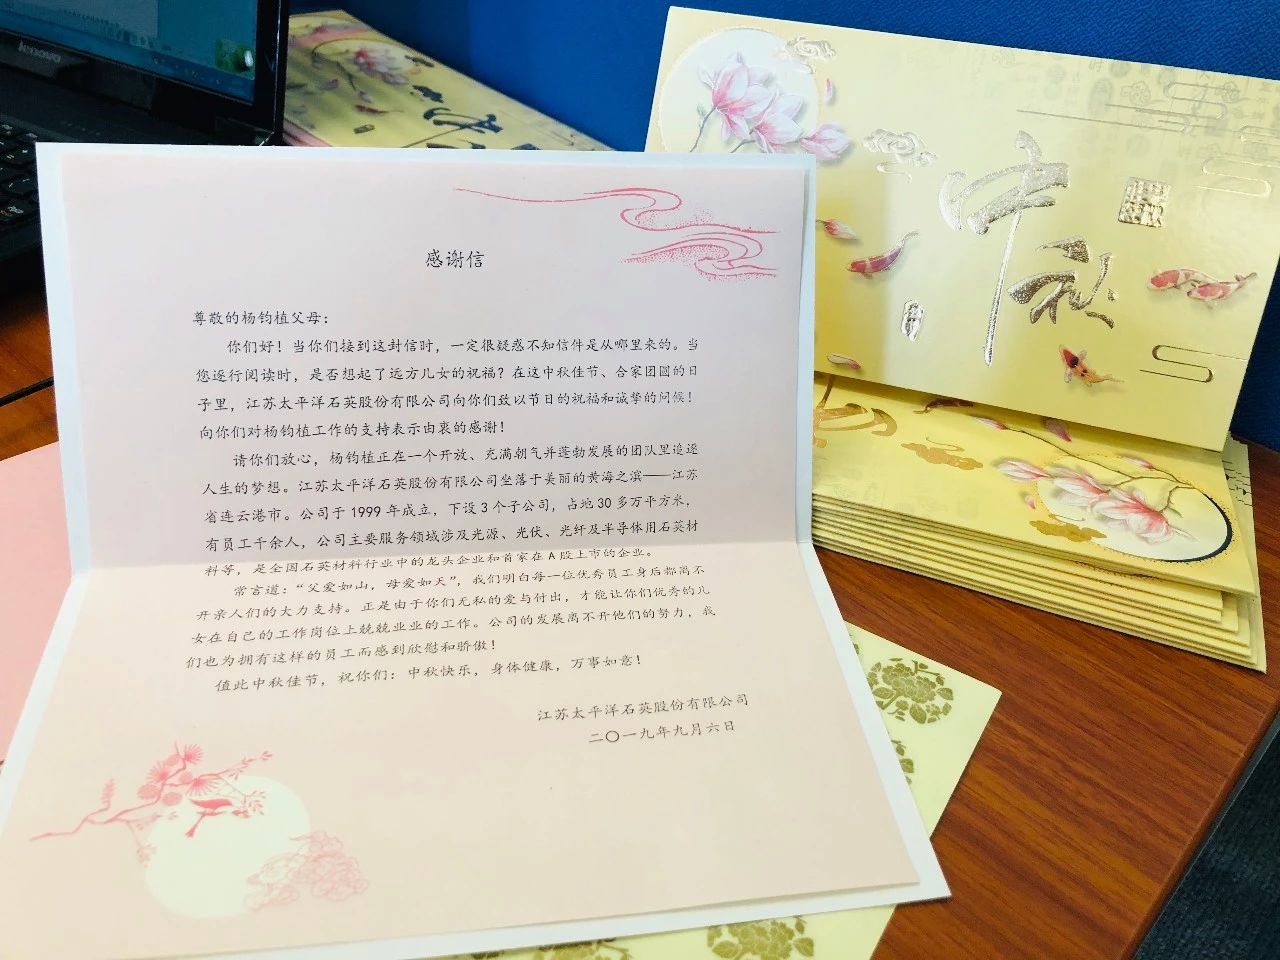 lenovo
感谢信
尊敬的杨钧植父母：
你们好！当你们接到这封信时，一定很疑惑不知信件是从哪里来的。当
您逐行阅读时，是否想起了远方儿女的祝福？在这中秋佳节、合家团圆的日
子里，江苏太平洋石英股份有限公司向你们致以节日的祝福和诚挚的问候！
向你们对杨钧植工作的支持表示由衷的感谢！
请你们放心，杨钧植正在一个开放、充满朝气并蓬勃发展的团队里追逐
人生的梦想。江苏太平洋石英股份有限公司坐落于美丽的黄海之滨——江苏
省连云港市。公司于1999年成立，下设3个子公司，占地30多万平方米，
有员工千余人，公司主要服务领域涉及光源、光伏、光纤及半导体用石英材
料等，是全国石英材料行业中的龙头企业和首家在A股上市的企业。
常言道：“父爱如山，母爱如天”，我们明白每一位优秀员工身后都离不
开亲人们的大力支持。正是由于你们无私的爱与付出，才能让你们优秀的儿
女在自己的工作岗位上兢兢业业的工作。公司的发展离不开他们的努力，我
们也为拥有这样的员工而感到欣慰和骄傲！
值此中秋佳节，祝你们：中秋快乐，身体健康，万事如意！
江苏太平洋石英股份有限公司
二〇一九年九月六日
中秋